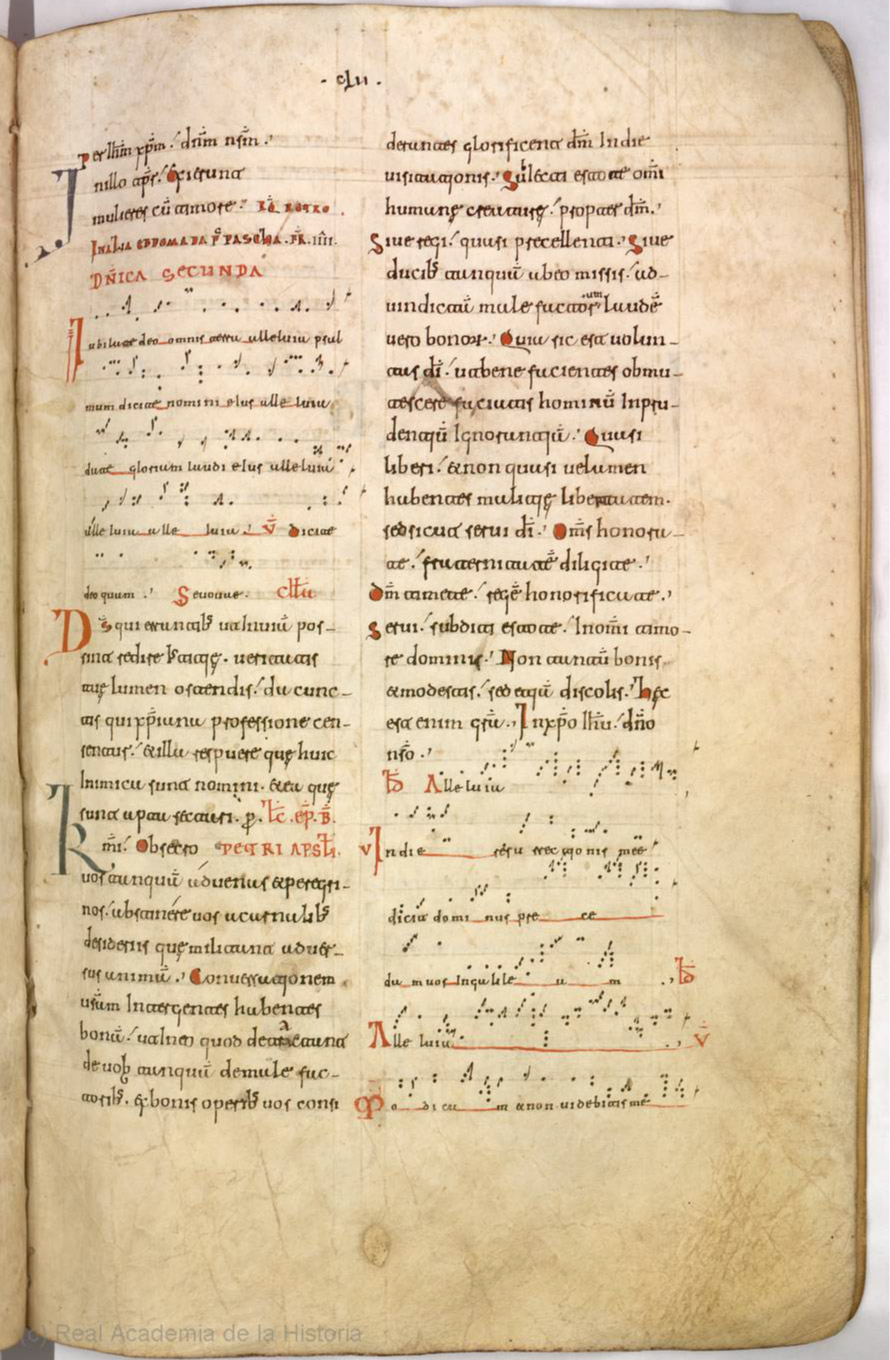 · clii ·
per ihm xpm / dnm nrm .
In illo tpr / Exierunt
mulieres cu timore .
In alia ebdomada p pascha . fr . iiii .
DNICA SECUNDA
Iubilate deo omnis terra alleluia psal
mum dicite nomini eius alleluia
date gloriam laudi eius alleluia
alleluia alleluia . V Dicite
deo quam . Seuouae . cllta
Ds qui errantib ut in uia pos
sint redire iustitię . ueritatis
tuę lumen ostendis / da cunc
tis qui xpiana professione cen
sentur / & illa respuere quę huic
inimica sunt nomini . & ea quę
sunt apta sectari . p . Lc . ep . B .
Kmi / Obsecro PETRI APSTLI .
uos tanquu aduenas & peregri
nos / abstinere uos a carnalib
desideriis quę militant aduer
sus animu . Conuersationem
uram inter gentes habentes
bonu / ut in eo quod detrectant
de uob tanquu de male fac
torib . & bonis operib uos consi
derantes glorificent dm In die
uisitationis . Subiecti estote omi
humanę creaturę / propter dm .
Siue regi / quasi precellenti . Siue
ducib tanquu ab eo missis / ad
uindictu malefactorum laude
uero bonor . Quia sic est uolun
tas di / ut bene facientes obmu
tescere faciatis hominu Inpru
dentiu Ignorantiu . Quasi
liberi / & non quasi uelamen
habentes malitię libertatem .
sed sicut serui di . Oms honora
te / fraternitate diligite .
Dm timete / rege honorificate .
Serui / subditi estote / In omi timo
re dominis . Non tantu bonis
& modestis / sed etiu discolis . Hęc
est enim gra . In xpo ihu / dno
nro .
Alleluia
V In die resurrectionis mee
dicit dominus pre ce
dam uos In galile a m .
Alleluia . V
Modicu m & non uidebitis me
(c) Real Academia de la Historia